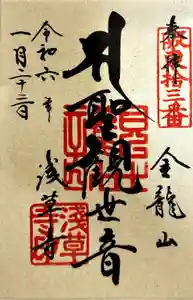 奉拝
坂東拾三番
金龍山
聖観世音
浅草寺
令和六年
一月二十三日